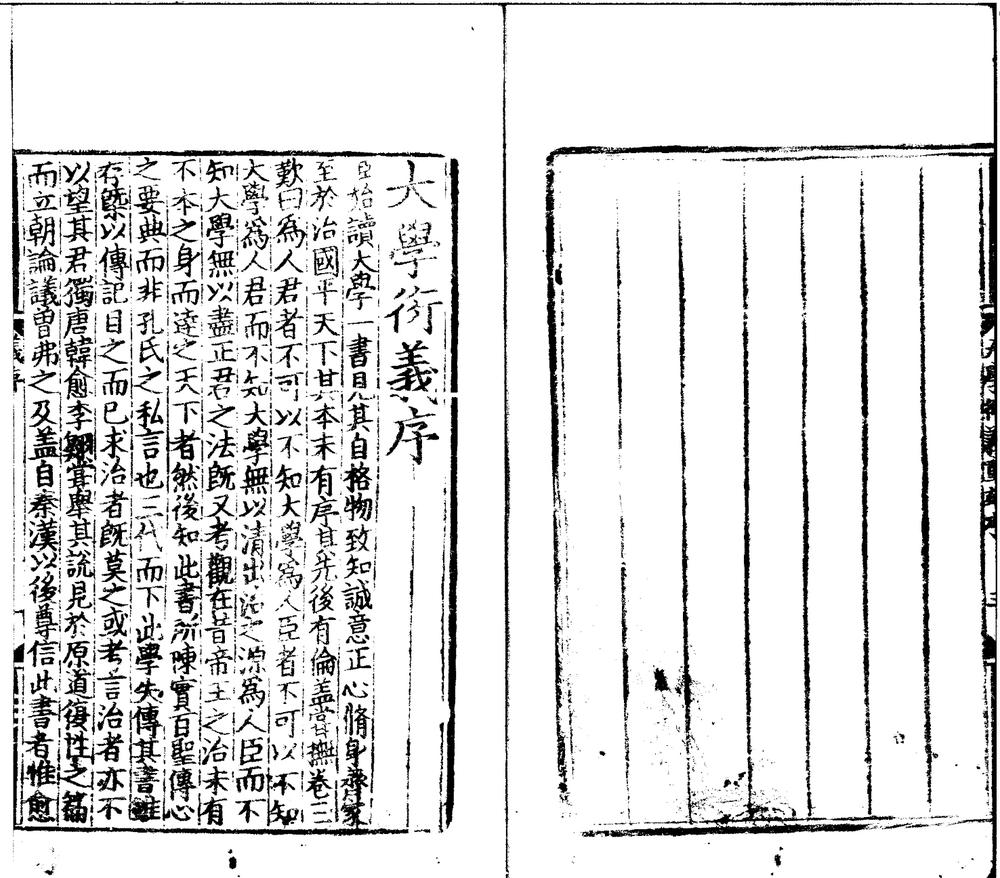 大學衍義序
臣始讀大學一書見其自格物致知誠意正心脩身齊家
至於治國平天下其本末有序其先後有倫盖嘗撫卷三
歎曰爲人君者不可以不知大學爲人臣者不可以不知
大學爲人君而不知大學無以清出治之源爲人臣而不
知大學無以盡正君之法旣又考觀在昔帝王之治未有
不本之身而逹之天下者然後知此書所陳實百聖傳心
之要典而非孔氏之私言也三代而下此學失傳其書雖
存槩以傳記目之而已求治者旣莫之或考言治者亦不
以望其君獨唐韓愈李翺甞舉其說見於原道復性之篇
而立朝論議曽弗之及盖自秦漢以後尊信此書者惟愈
義序